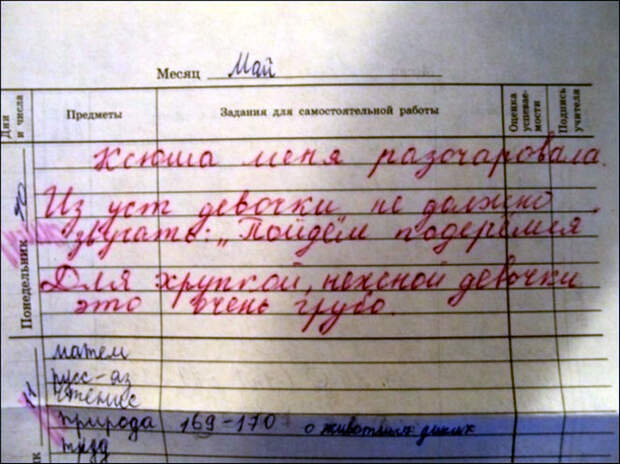 Месяц Май
Дни и числа
Предметы
Задания для самостоятельной работы
Оценка успевае-мости
Подпись учителя
Понедельник
Ксюша меня разочаровала.
Из уст девочки не должно
звучать: „Пойдём подерёмся.
Для хрупкой, нежной девочки
это очень грубо.
матем
русс-яз
чтение
природа 169-170 о животных диких
труд